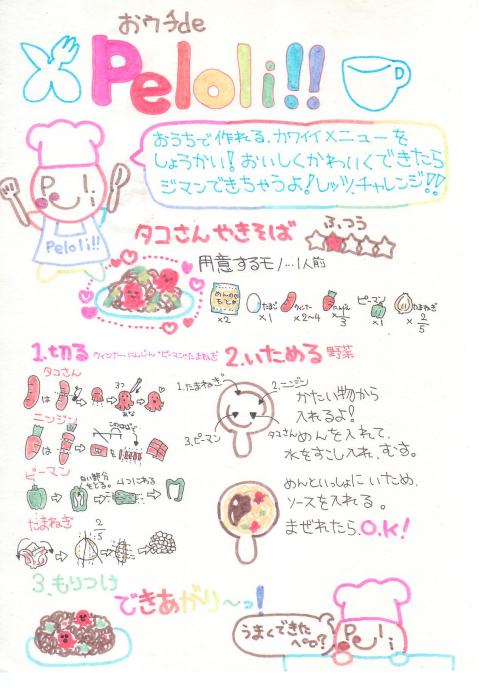 おウチde
Peloli!!
おうちで作れる、カワイイメニューを
しょうかい!おいしくかわいくできたら
ジマンできちゃうよ!レッツ、チャレンジ!!
Peloli
Peloli!!
タコさんやきそば
ふつう
用意するモノ…1人前
×2
たまご
×1
ウィンナー
×2~4
にんじん
ピーマン
×1
たまねぎ
× 2/5
1.切る ウィンナー・にんじん・ピーマン・たまねぎ
タコさん
ニンジン
ピーマン
4つにわる
たまねぎ
2/5
2.いためる 野菜
1.たまねぎ
2.ニンジン
3.ピーマン
タコさん
かたい物から
入れるよ!
めんを入れて、
水をすこし入れ、むす。
めんといっしょにいため、
ソースを入れる。
まぜれたら、O.K!
3.もりつけ
できあがり~っ!
うまくできた
ペロ?
Peloli